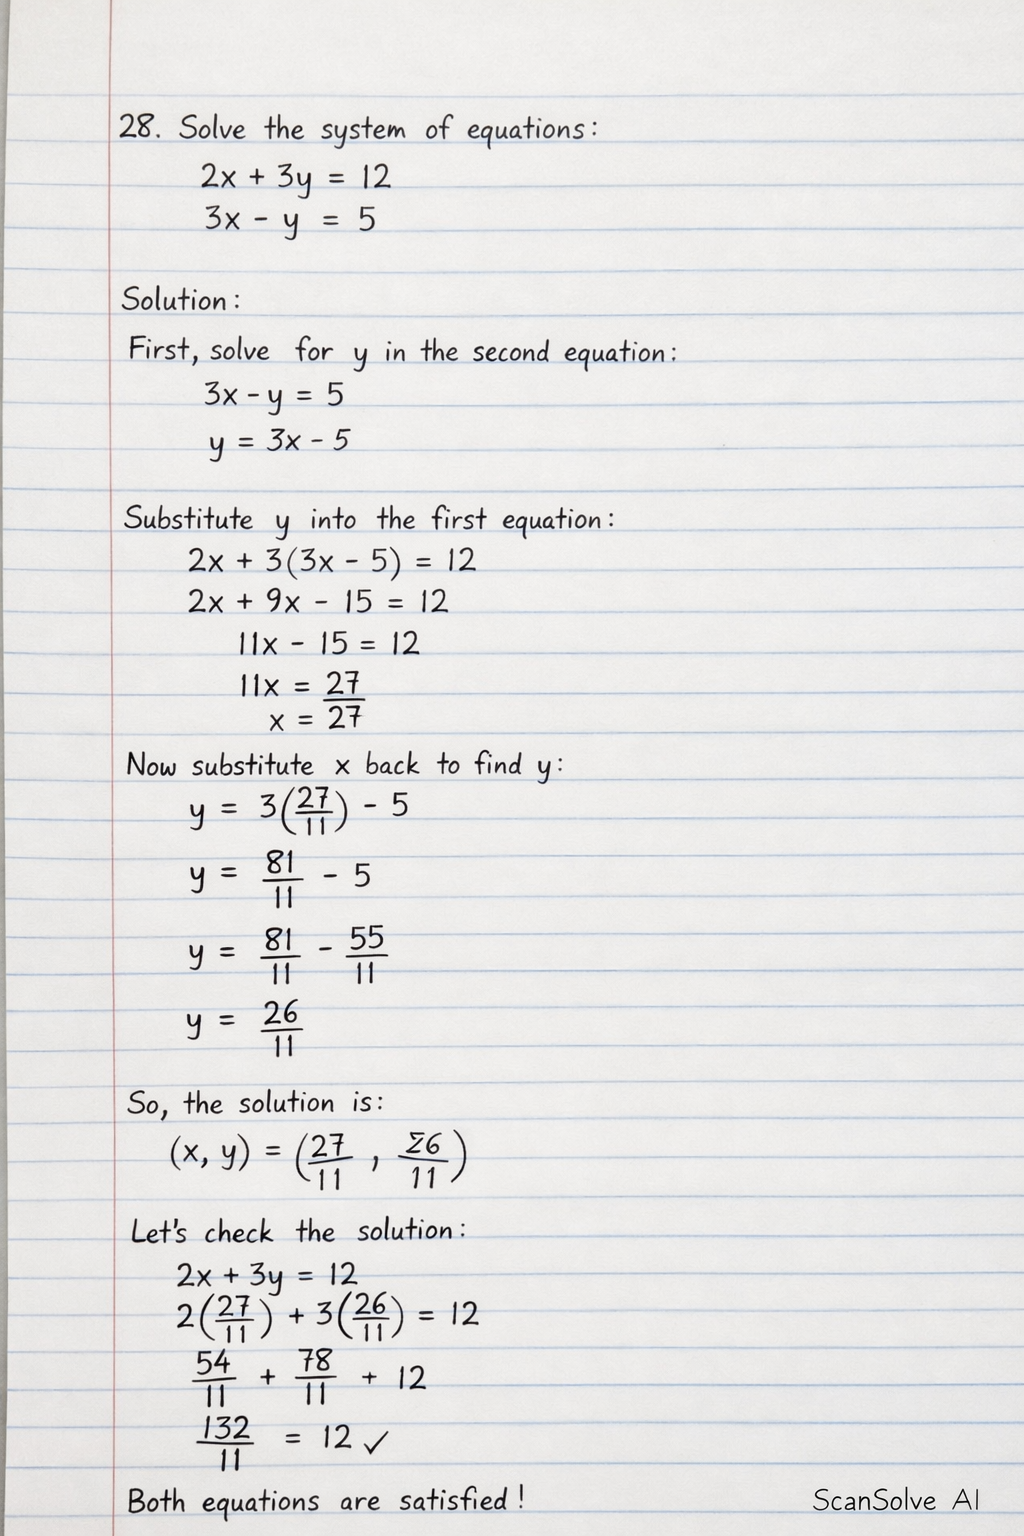 28. Solve the system of equations:
2x + 3y = 12
3x - y = 5
Solution:
First, solve for y in the second equation:
3x - y = 5
y = 3x - 5
Substitute y into the first equation:
2x + 3(3x - 5) = 12
2x + 9x - 15 = 12
11x - 15 = 12
11x = 27
x = 27
Now substitute x back to find y:
y = 3(27/11) - 5
y = 81/11 - 5
y = 81/11 - 55/11
y = 26/11
So, the solution is:
(x, y) = (27/11 , Σ6/11)
Let's check the solution:
2x + 3y = 12
2(27/11) + 3(26/11) = 12
54/11 + 78/11 + 12
132/11 = 12 ✓
Both equations are satisfied!
ScanSolve AI